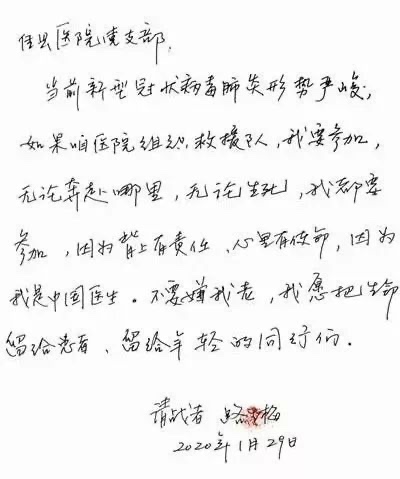 佳县医院党支部，
当前新型冠状病毒肺炎形势严峻，
如果咱医院组织救援队，我要参加，
无论奔赴哪里，无论生死，我都要
参加，因为背上有责任，心里有使命，因为
我是中国医生。不要嫌我老，我愿把生命
留给患者、留给年轻的同行们。
请战者
2020年1月29日